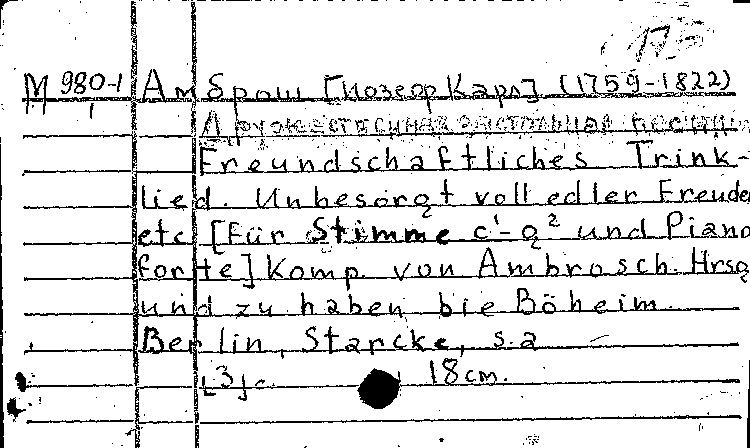 175
M 980-1 Амброш [Иозеф Карл] (1759-1822)
Дружественная застольная песня
Freundschaftliches Trink-
lied. Unbesorgt voll edler Freude
etc [Für Stimme c¹-g² und Piano
forte] Komp. von Ambrosch. Hrsg
und zu haben bie Böheim.
Berlin, Starcke, s.a
[3]c. 18cm.